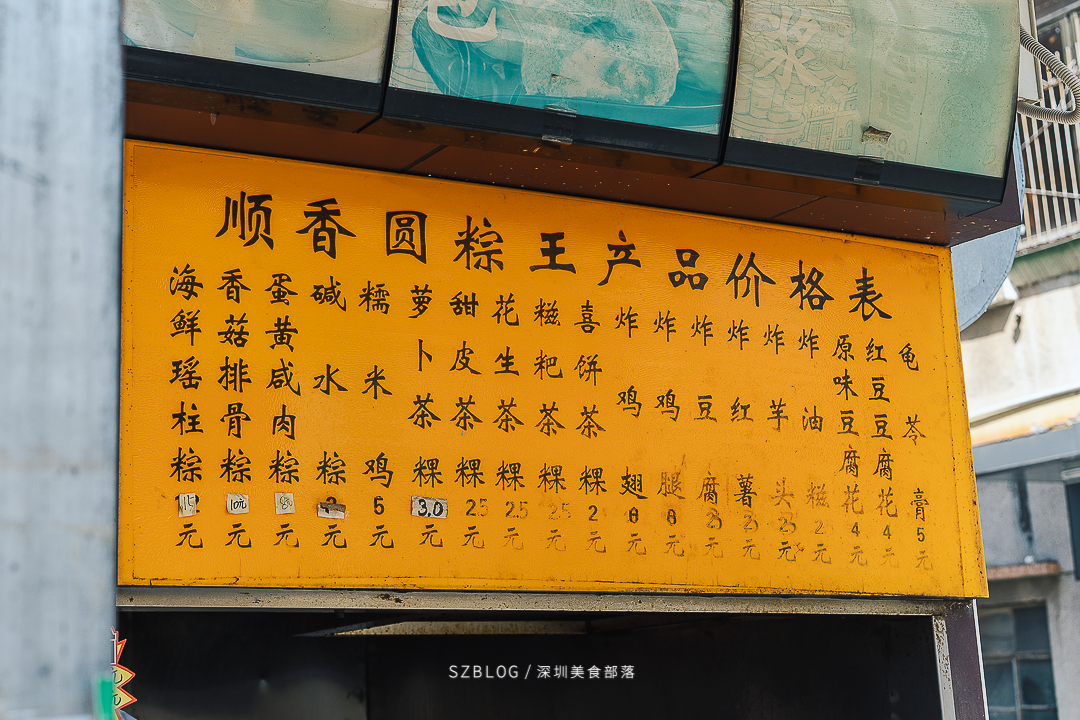 包
浆
顺香圆粽王产品价格表
海鲜瑶柱粽 15元
香菇排骨粽 10元元
蛋黄咸肉粽 8元元
碱水粽 元
糯米鸡 5元
萝卜茶粿 3.0元
甜皮茶粿 2.5元
花生茶粿 2.5元
糍粑茶粿 2.5元
喜饼茶粿 2元
炸鸡翅 8元
炸鸡腿 8元
炸豆腐 元
炸红薯 元
炸芋头 元
炸油糍 2元
原味豆腐花 4元
红豆豆腐花 4元
龟苓膏 5元
SZBLOG / 深圳美食部落